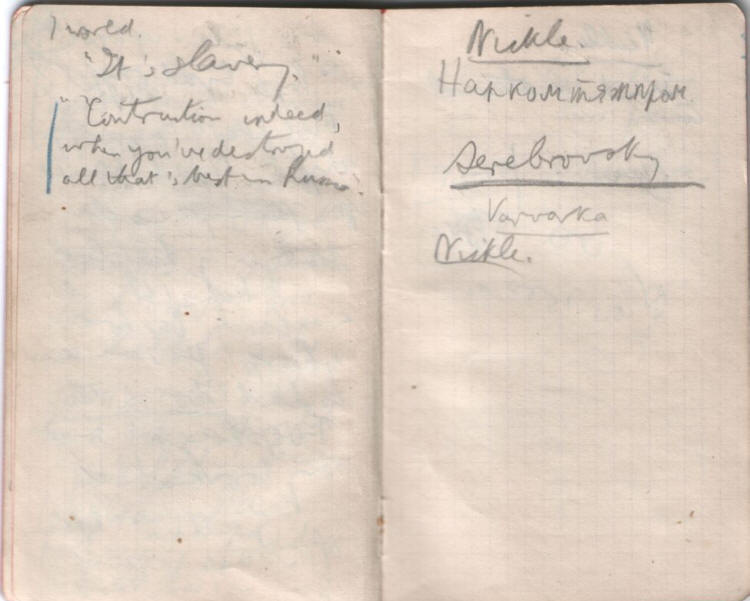 1 world.
"It's slavery."
"Contruction indeed,
when you've destroyed
all that's best in Russia".
Nickle.
Наркомтяжпром
Serebrovsky
Varvarka
Nickle.